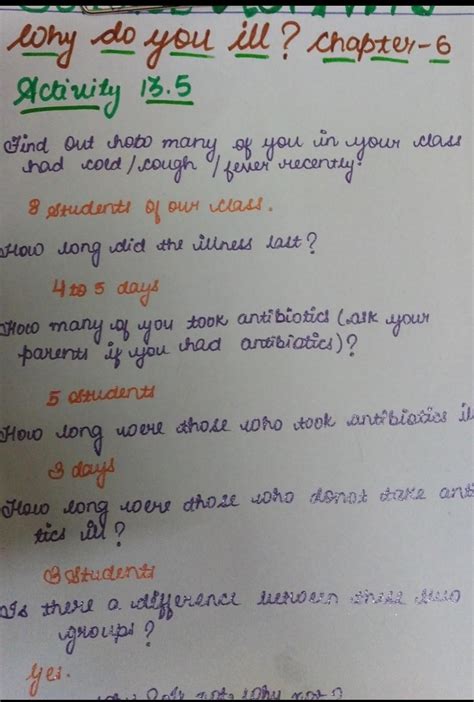 Why do you ill? Chapter-6
Activity 13.5
Find out how many of you in your class
had cold/cough/fever recently.
8 students of our class.
How long did the illness last?
4 to 5 days
How many of you took antibiotics (ask your
parents if you had antibiotics)?
5 students
How long were those who took antibiotics il
3 days
How long were those who donot take anti
tics ill?
3 students
Is there a difference between these two
groups?
Yes.